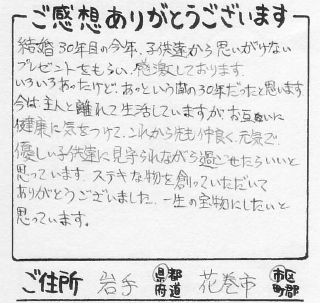 ご感想ありがとうございます
結婚30年目の今年、子供達から思いがけない
プレゼントをもらい、感激しております。
いろいろあったけど、あっという間の30年だったと思います
今は主人と離れて生活していますがお互いに
健康に気をつけて、これから先も仲良く、元気で
優しい子供達に見守られながら過ごせたらいいと
思っています。ステキな物を創っていただいて
ありがとうございました。一生の宝物にしたいと
思っています。
ご住所 岩手 都道府県 花巻市 市区町郡